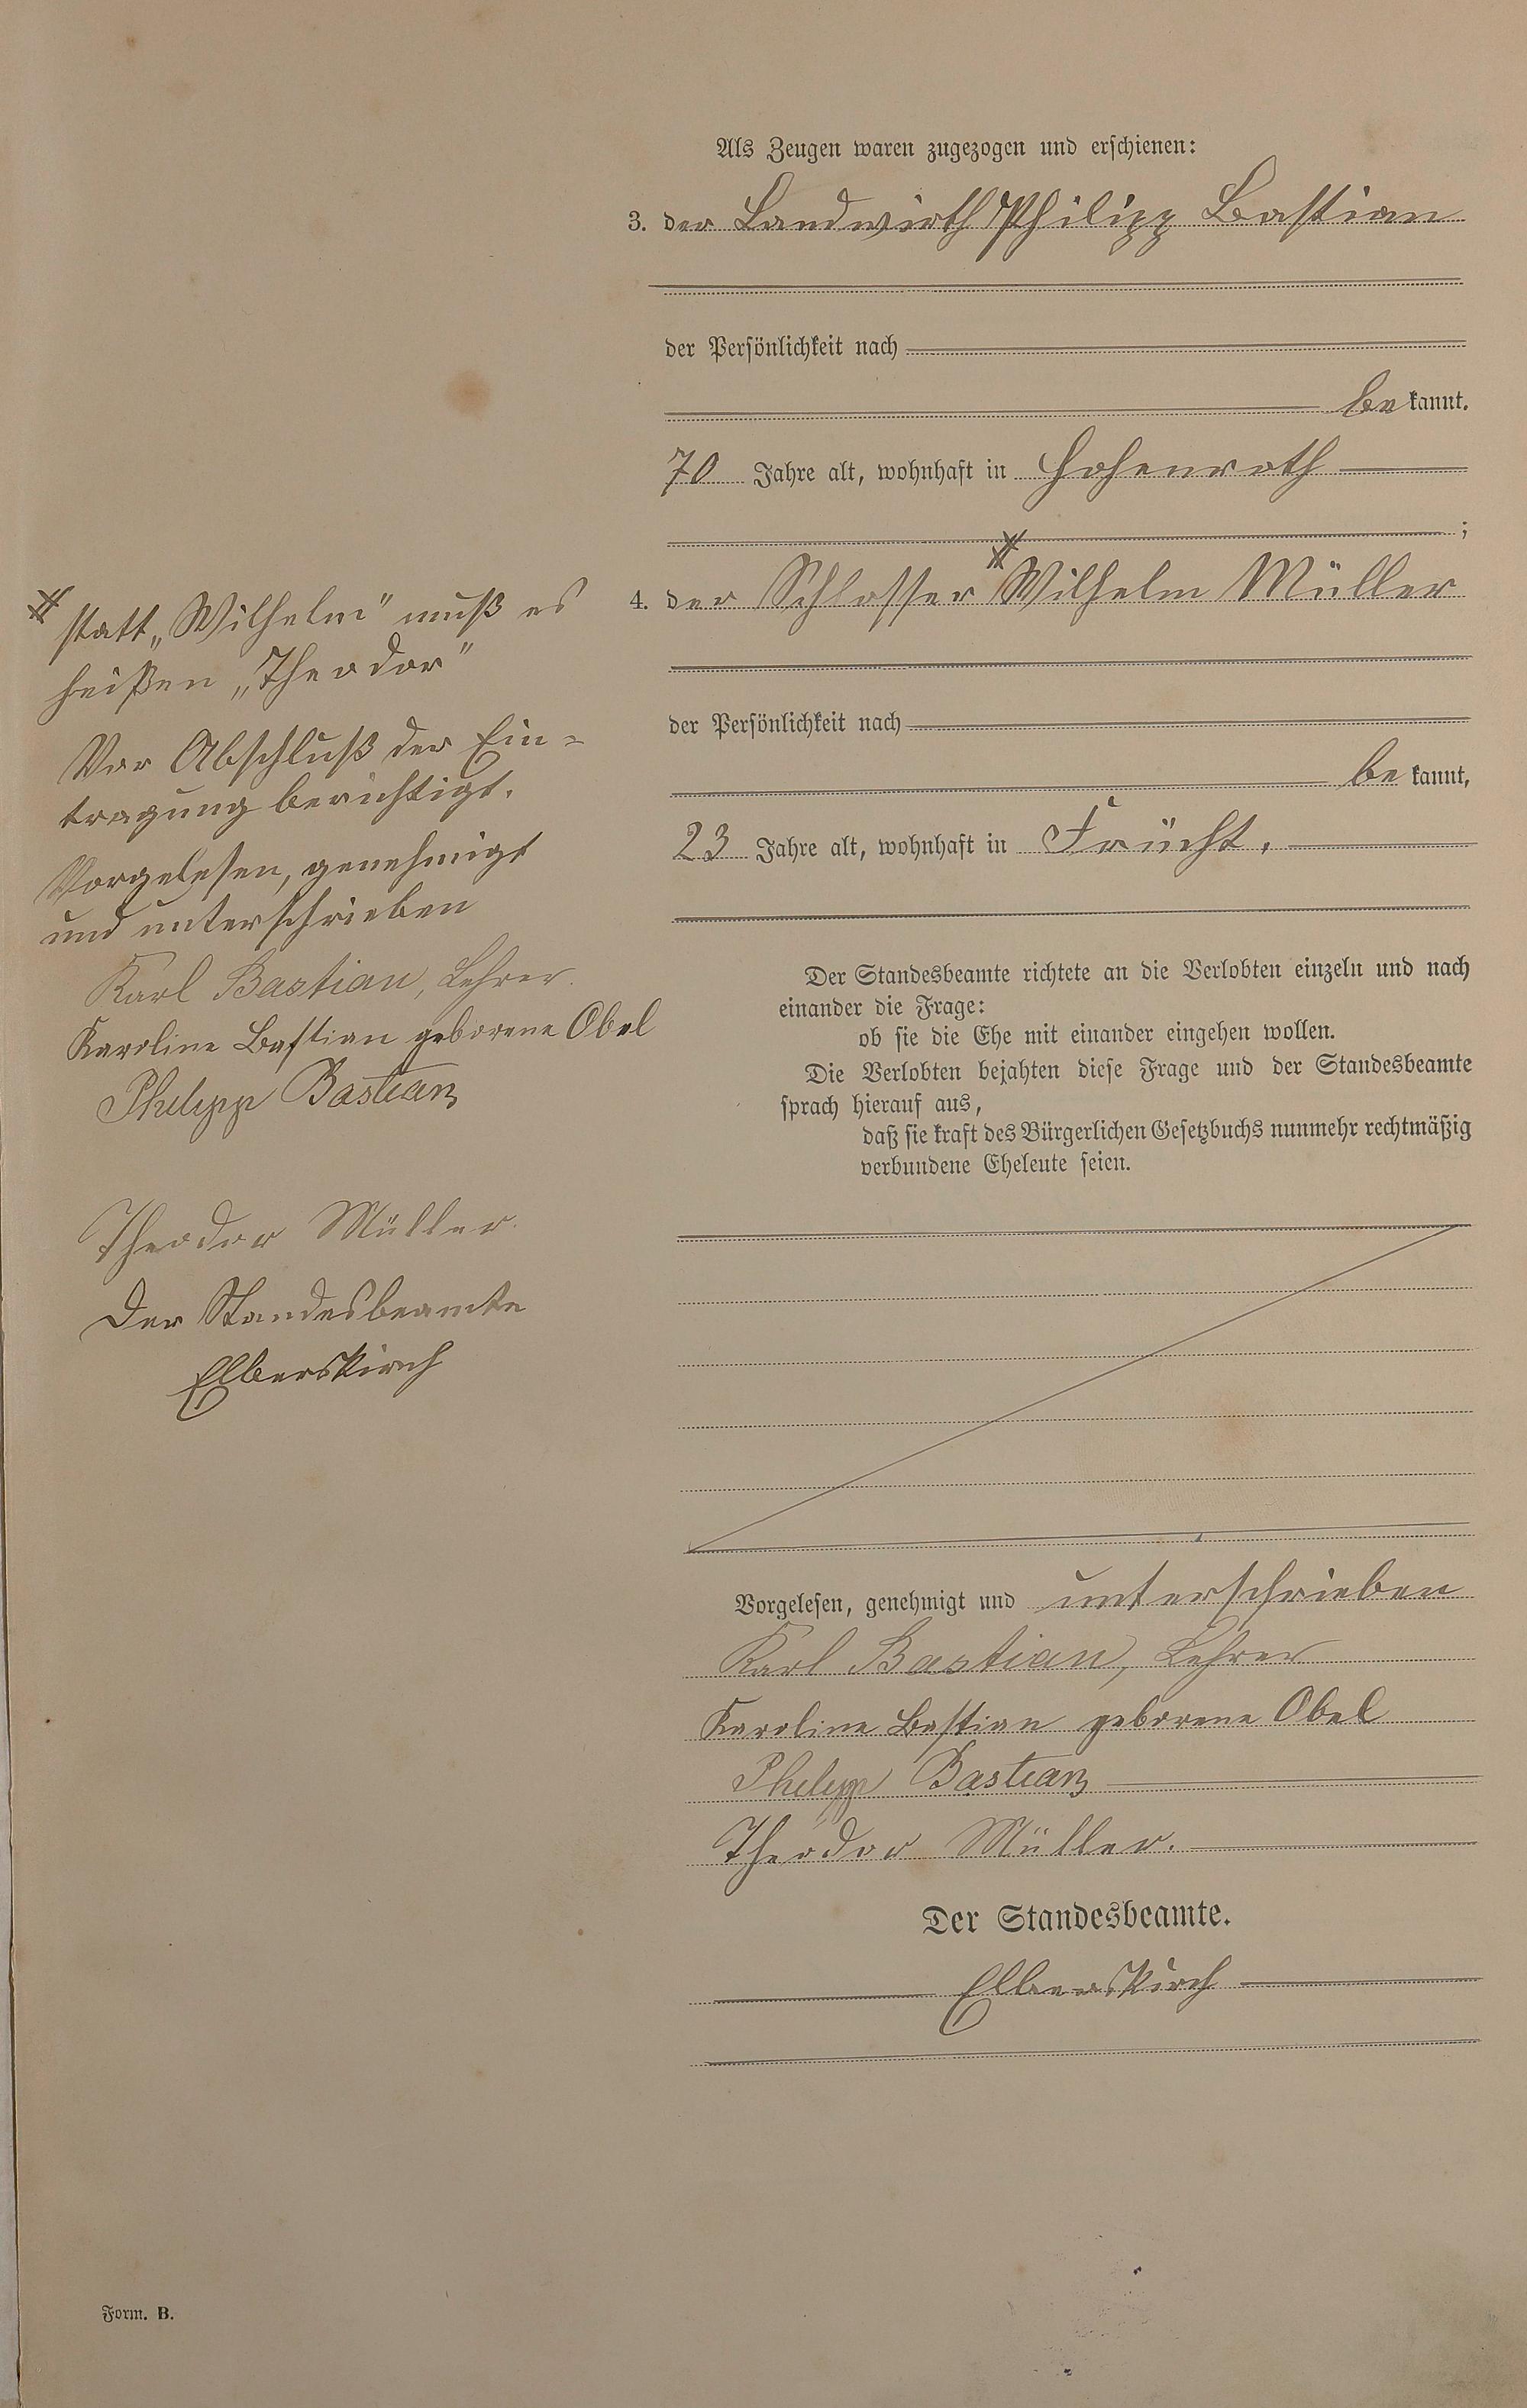 Als Zeugen waren zugezogen und erschienen:
3. der Landwirth Philipp Bastian
der Persönlichkeit nach
be kannt.
70 Jahre alt, wohnhaft in Hohenroth
;
4. der Schlosser # Wilhelm Müller
der Persönlichkeit nach
be kannt,
23 Jahre alt, wohnhaft in Frücht.
Der Standesbeamte richtete an die Verlobten einzeln und nach
einander die Frage:
ob sie die Ehe mit einander eingehen wollen.
Die Verlobten bejahten diese Frage und der Standesbeamte
sprach hierauf aus,
daß sie kraft des Bürgerlichen Gesetzbuchs nunmehr rechtmäßig
verbundene Eheleute seien.
Vorgelesen, genehmigt und unterschrieben
Karl Bastian, Lehrer
Karoline Bastian geborene Obel
Philipp Bastian
Theodor Müller.
Der Standesbeamte.
Elberskirch
# statt „Wilhelm" muß es
heißen „Theodor"
Vor Abschluß der Ein=
tragung berichtigt.
Vorgelesen, genehmigt
und unterschrieben
Karl Bastian, Lehrer.
Karoline Bastian geborene Obel
Philipp Bastian
Theodor Müller.
Der Standesbeamte
Elberskirch
Form. B.